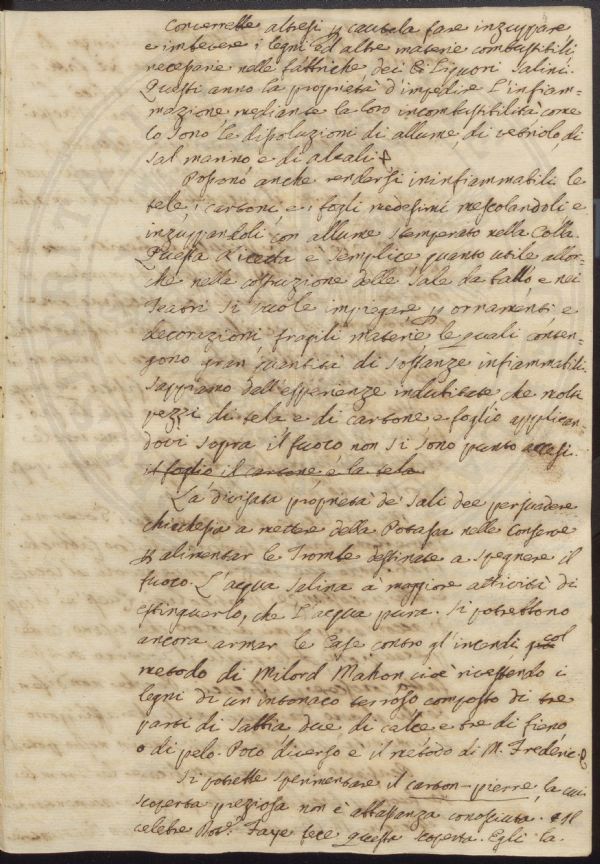 Converrebbe altresì p cautela fare inzuppare
e imbevere i legni ed altre materie combustibili
necessarie nelle fabbriche dei Liquori salini.
Questi anno la proprietà d'impedir l'infiam-
mazione mediante la loro incombustibilità come
lo sono le dissoluzioni di allume, di vetriolo, di
sal marino e di alcali.
Possono anche rendersi ininfiammabili le
tele, i cartoni, e i fogli medesimi mescolandoli e
inzuppandoli con allume stemperato nella Colla.
Questa Ricetta è semplice quanto utile allor-
chè nella costruzione delle Sale da ballo e nei
Teatri si vuole impiegare p ornamenti, e
decorazioni fragili materie le quali conten-
gono gran quantità di sostanze infiammabili.
Sappiamo dall'esperienze indubitate che molti
pezzi di tela e di cartone e foglio applican-
dovi sopra il fuoco non si sono punto accesi
il foglio il cartone e la tela
La divisata proprietà de' sali dee persuadere
chicchesia a mettere della Potassa nelle Conserve
p alimentar le Trombe destinate a spegnere il
fuoco. L'acqua salina à maggiore attività di
estinguerlo, che l'acqua pura. Si potrebbono
ancora armar le Case contro gl'incendi col
metodo di Milord Mahon cioè rivestendo i
legni di un intonaco terroso composto di tre
parti di sabbia due di calce e tre di fieno
o di pelo. Poco diverso è il metodo di M. Frederic.
Si potrebbe sperimentare il carton-pierre, la cui
scoperta preziosa non è abbastanza conosciuta. Il
celebre Faye fece questa scoperta. Egli la